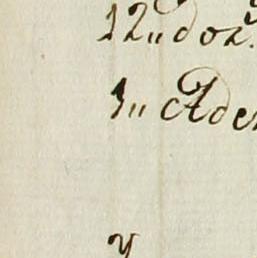 12 „ doz.
1 „ Ade
y